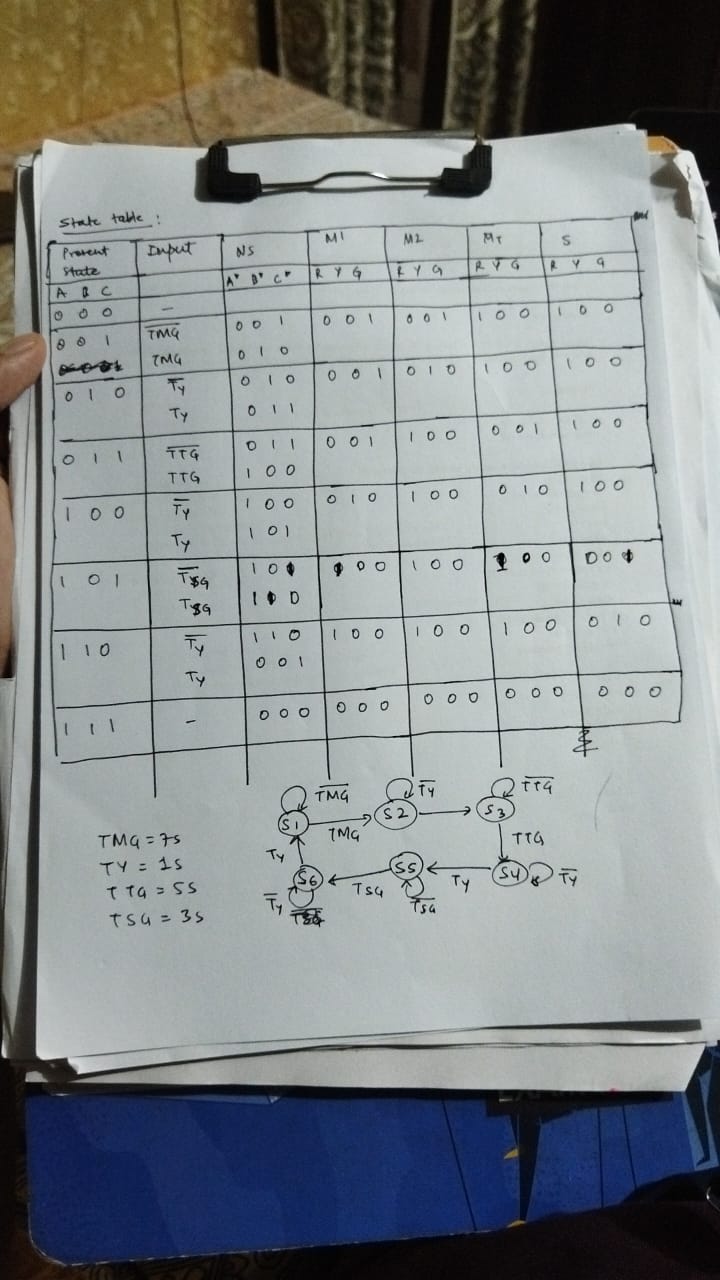 State table :
Present State Input NS M1 M2 MT S
A B C A* B* C* R Y G R Y G R Y G R Y G
0 0 0 –
0 0 1 T̅M̅G̅ 0 0 1 0 0 1 0 0 1 1 0 0 1 0 0
TMG 0 1 0
0 1 0 T̅y̅ 0 1 0 0 0 1 0 1 0 1 0 0 1 0 0
Ty 0 1 1
0 1 1 T̅T̅G̅ 0 1 1 0 0 1 1 0 0 0 0 1 1 0 0
TTG 1 0 0
1 0 0 T̅y̅ 1 0 0 0 1 0 1 0 0 0 1 0 1 0 0
Ty 1 0 1
1 0 1 T̅S̅G̅ 1 0 1 1 0 0 1 0 0 1 0 0 0 0 1
TSG 1 1 0
1 1 0 T̅y̅ 1 1 0 1 0 0 1 0 0 1 0 0 0 1 0
Ty 0 0 1
1 1 1 – 0 0 0 0 0 0 0 0 0 0 0 0 0 0 0
T̅M̅G̅ T̅y̅ T̅T̅G̅
S1 TMG S2 S3
TTG
Ty S6 TSG S5 Ty S4 T̅y̅
T̅y̅ T̅S̅G̅
TMG = 7s
TY = 1s
TTG = 5s
TSG = 3s